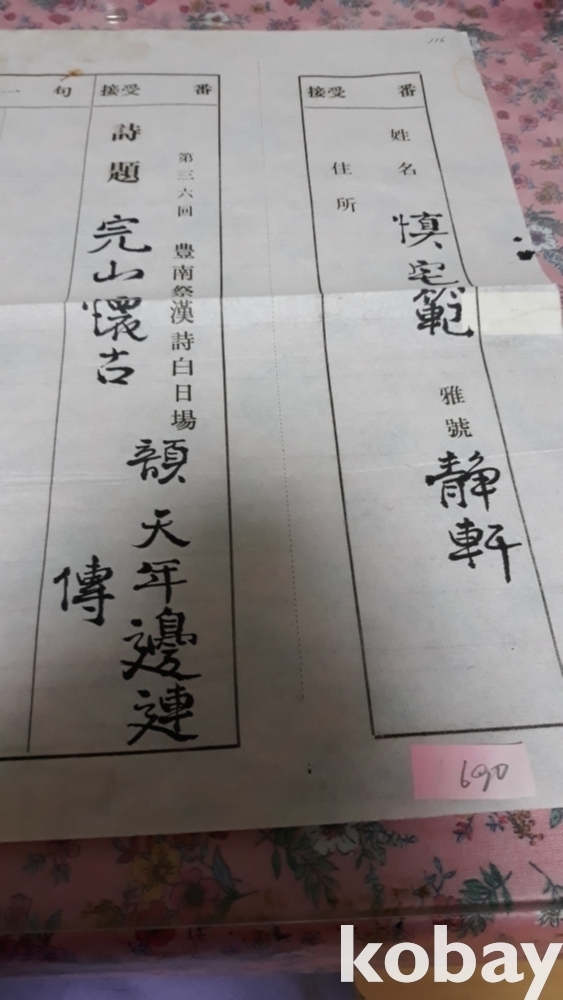 116
接受 番
姓名 慎宅範 雅號 靜軒
住所
接受 番
第三六回 豊南祭漢詩白日場
韻 天年邊連
傳
詩題 完山懷古
一句
690
kobay